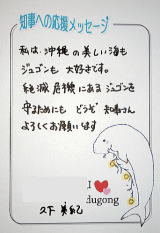 知事への応援メッセージ
私は、沖縄の美しい海も
ジュゴンも大好きです。
絶滅危機にあるジュゴンを
守るためにも どうぞ 知事さん
よろしくお願いします
I
dugong
久下 美紀